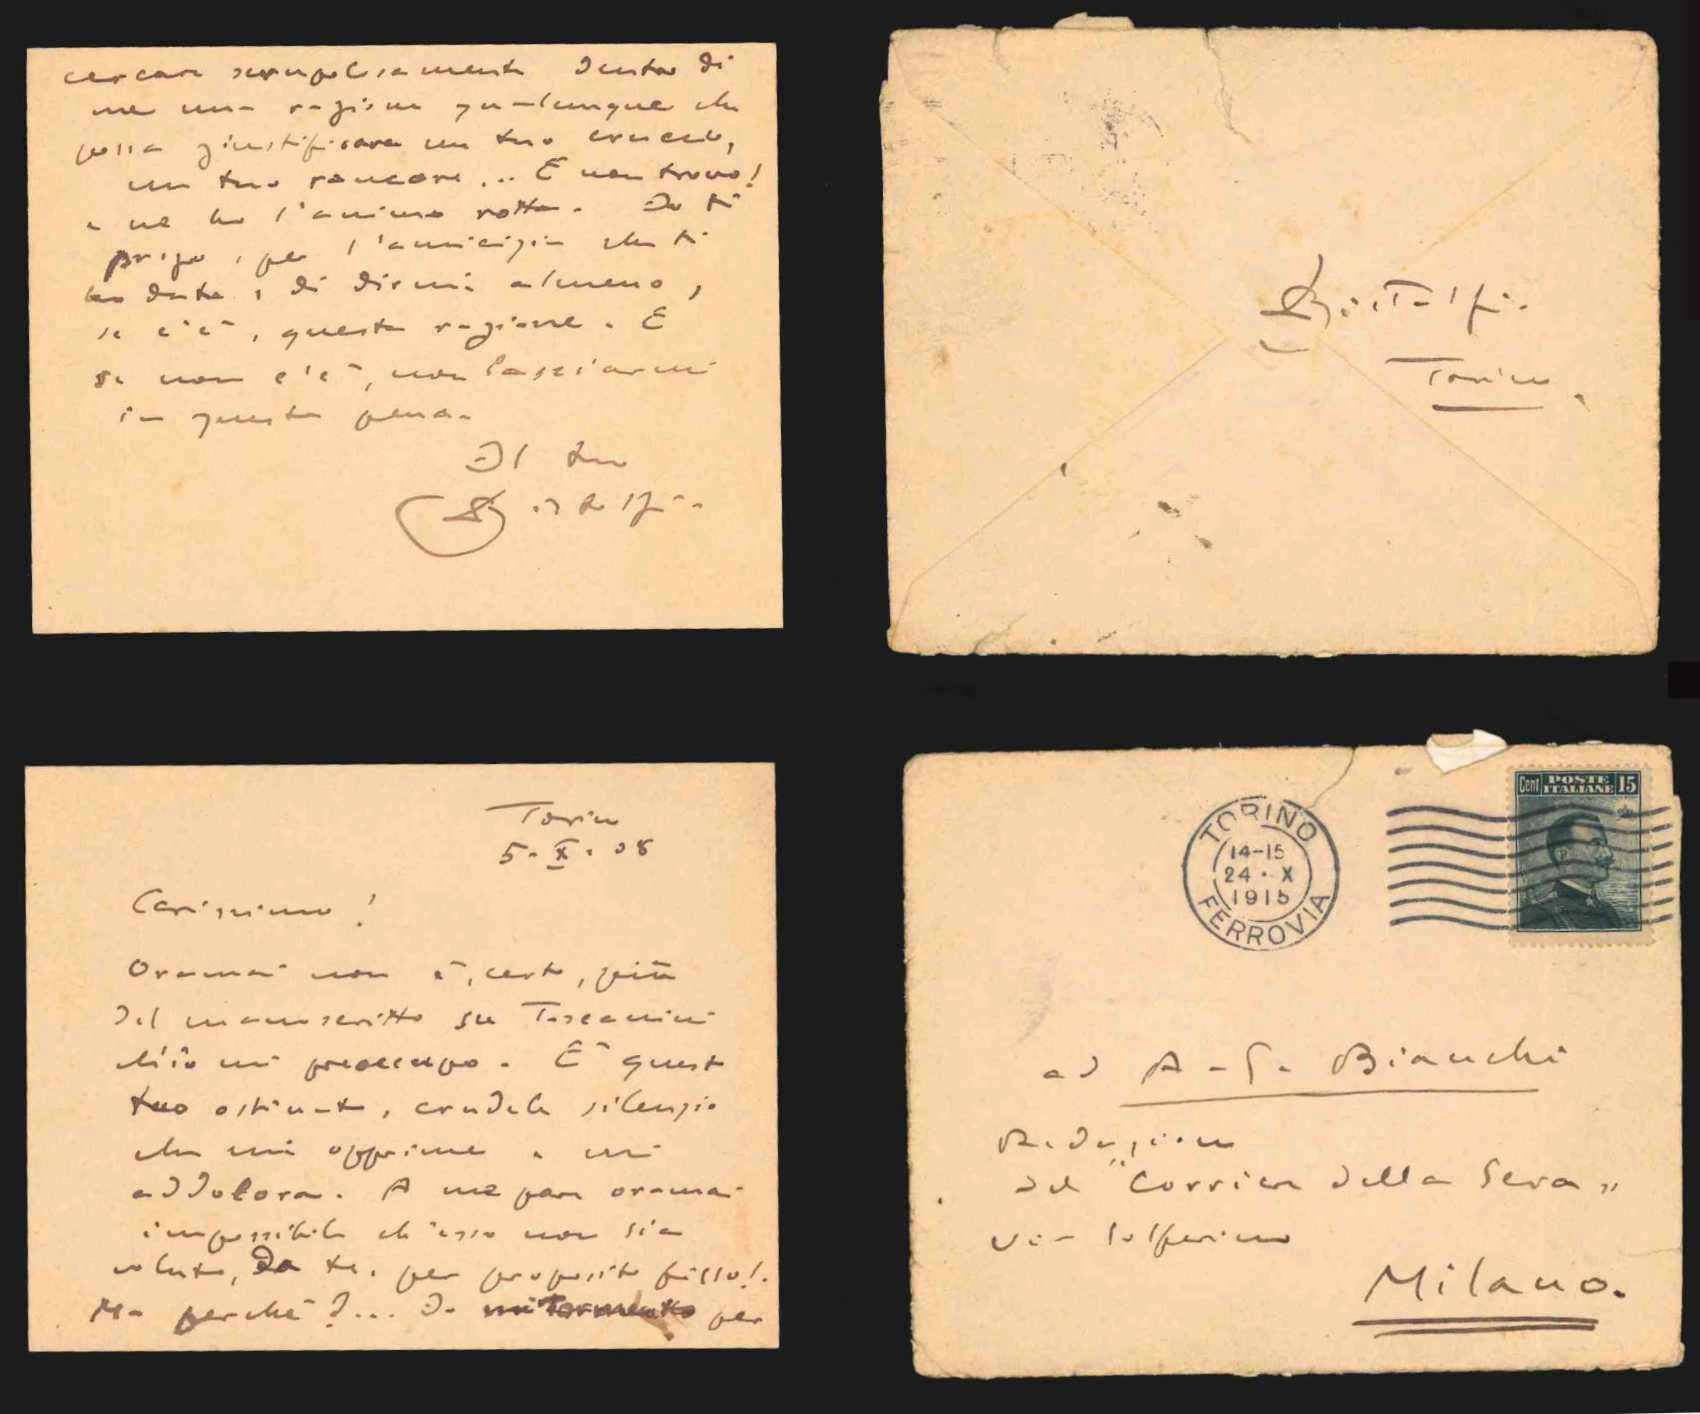 cercare scrupolosamente dentro di
me una ragione qualunque che
possa giustificare un tuo cruccio,
un tuo rancore... E non trovo!
e ne ho l'animo rotto. Io ti
prego, per l'amicizia che ti
ho data, di dirmi almeno,
se c'è, questa ragione. E
se non c'è, non lasciarmi
in questa pena.
Il tuo
Bistolfi.
Bistolfi.
Torino.
Torino
5. X. 08
Carissimo!
Oramai non è, certo, più
del manoscritto su Toscanini
ch'io mi preoccupo. È questo
tuo ostinato, crudele silenzio
che mi opprime e mi
addolora. A me pare oramai
impossibile ch'esso non sia
voluto, da te, per proposito fisso!.
Ma perchè?... Io mi tormento per
TORINO
14-15
24·X
1915
FERROVIA
Cent POSTE ITALIANE 15
ad A. G. Bianchi
Redazione
del "Corriere della Sera„
via Solferino
Milano.